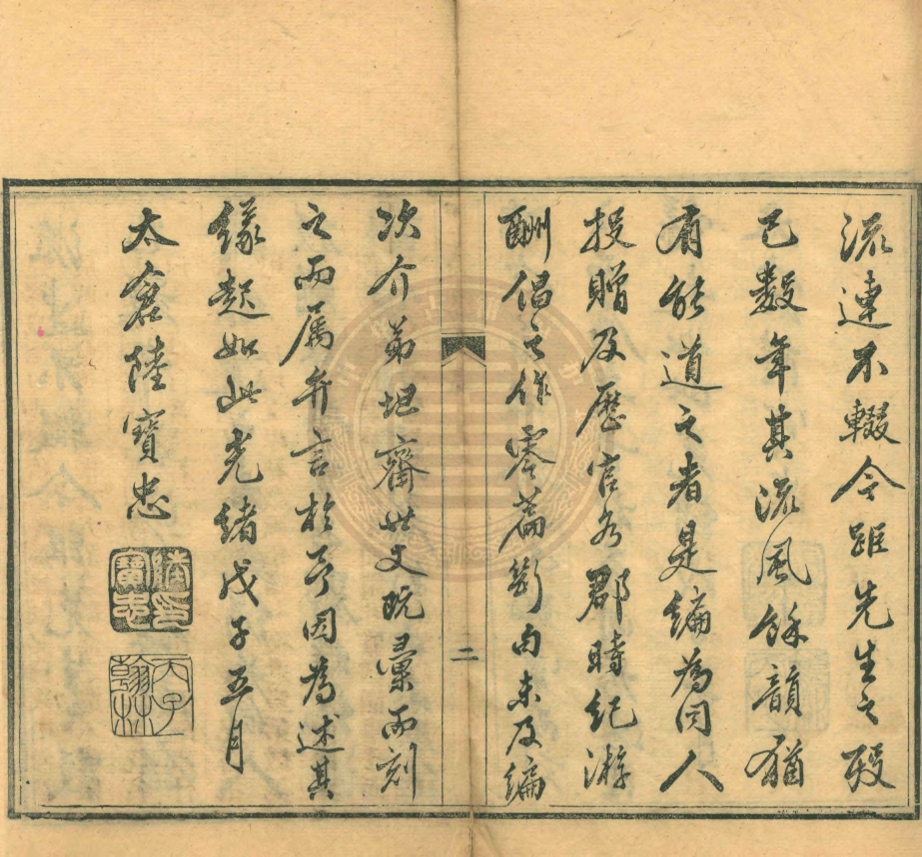 流連不輟今距先生之歿
已數年其流風餘韻猶
有能道之者是編為同人
投贈及歷官各郡時紀游
酬倡之作零篇斷句未及編
二
次介弟坦齋世丈既彙而刻
之而屬弁言於予因為述其
緣起如此光緒戊子五月
太倉陸寶忠
陸印寶忠
天子翰林